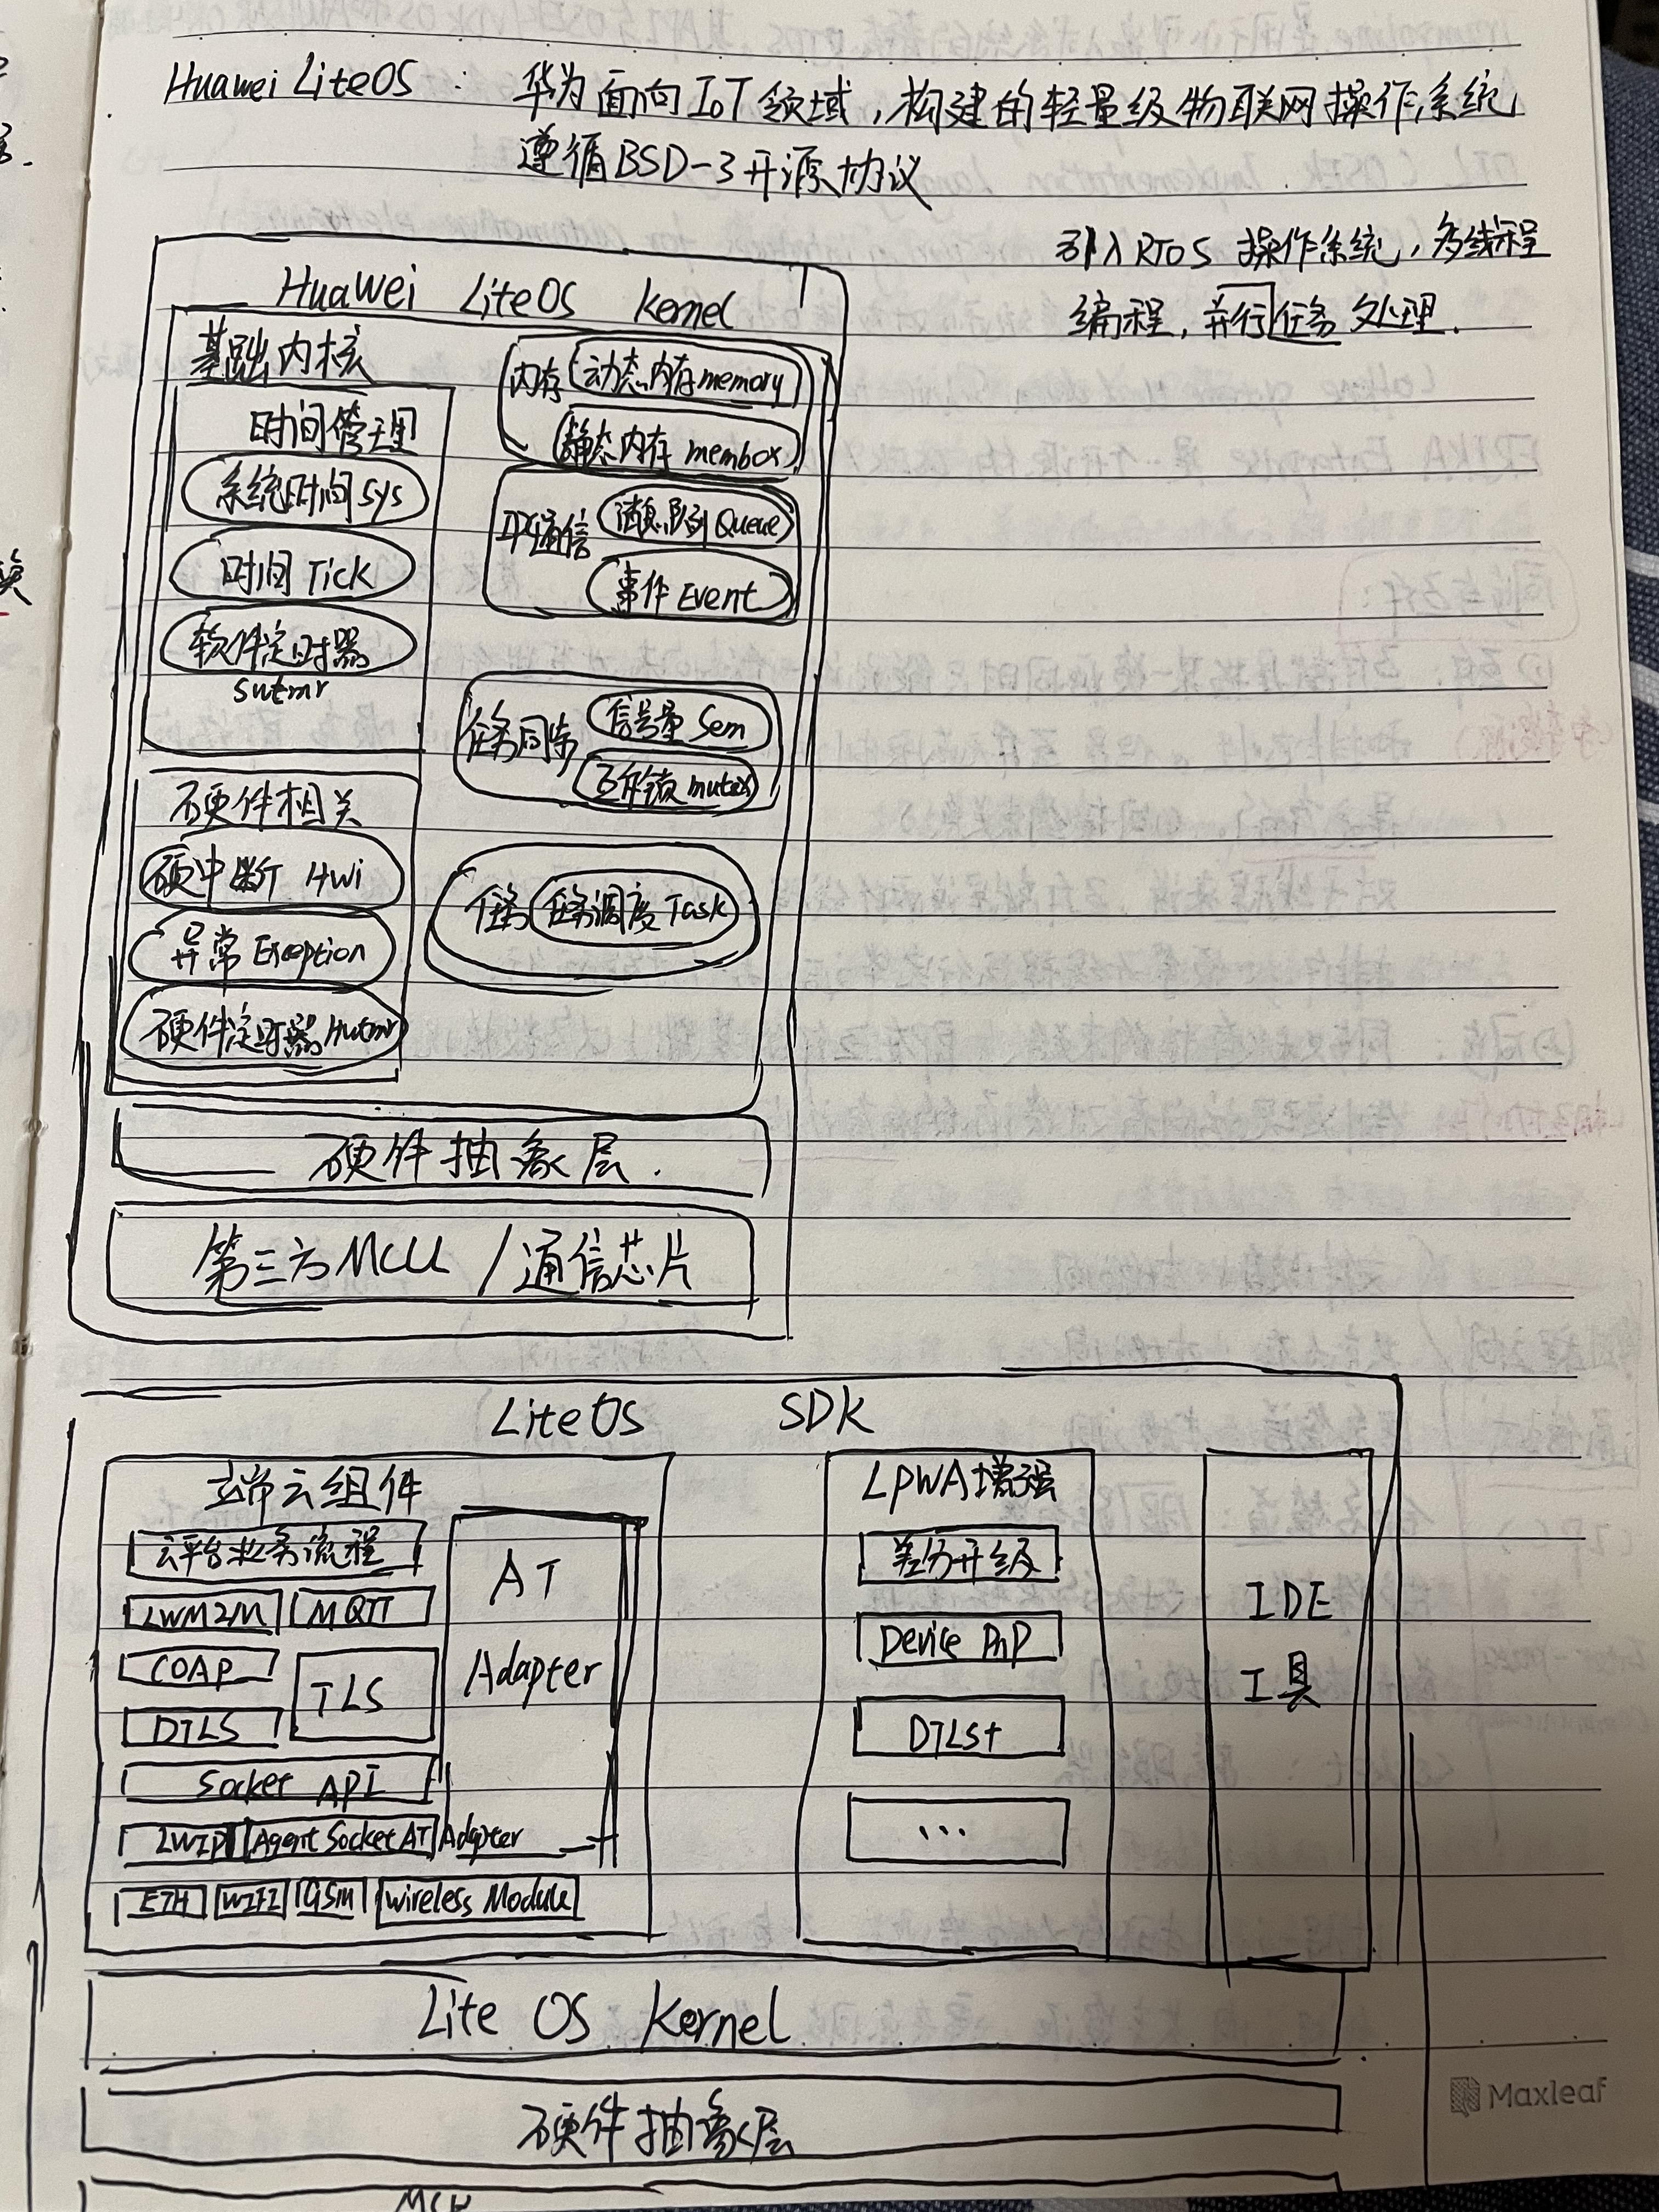 Huawei LiteOS : 华为面向IoT领域,构建的轻量级物联网操作系统
遵循BSD-3开源协议
引入RTOS 操作系统,多线程
编程,并行任务处理.
Huawei LiteOS kernel
基础内核
时间管理
系统时间sys
时间 Tick
软件定时器
swtmr
硬件相关
硬中断 Hwi
异常 Exception
硬件定时器 Hwtmr
内存 动态内存memory
静态内存 membox
IPC通信 消息队列 Queue
事件 Event
任务同步 信号量 Sem
互斥锁 mutex
任务 任务调度 Task
硬件抽象层.
第三方MCU / 通信芯片
LiteOS SDK
端云组件
云平台业务流程
LWM2M MQTT
COAP TLS
DTLS
Socket API
LWIP Agent Socket AT Adapter
ETH WIFI GSM wireless Module
AT
Adapter
LPWA增强
差分升级
Device PnP
DTLS+
...
IDE
工具
Lite OS Kernel
硬件抽象层
MCU
Maxleaf